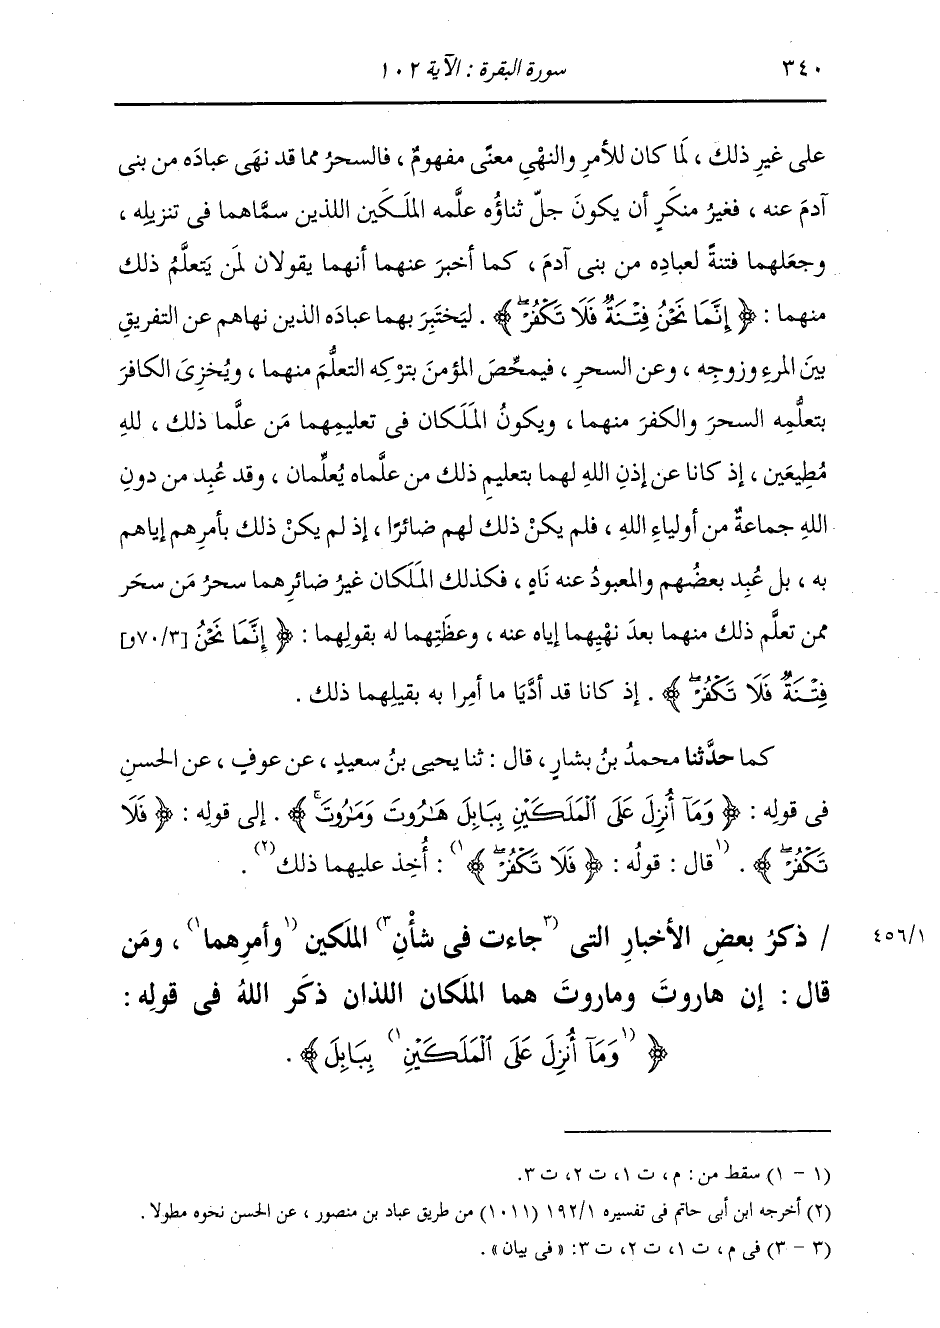 ٣٤٠ سورة البقرة : الآية ١٠٢
على غيرِ ذلك ، لَما كان للأمرِ والنهْىِ معنًى مفهومٌ ، فالسحرُ مما قد نهَى عبادَه من بنى
آدمَ عنه ، فغيرُ منكَرٍ أن يكونَ جلّ ثناؤُه علَّمه الملَكَين اللذين سمَّاهما فى تنزيلِه ،
وجعَلهما فتنةً لعبادِه من بنى آدمَ ، كما أخبرَ عنهما أنهما يقولان لمن يَتعلَّمُ ذلك
منهما : ﴿ إِنَّمَا نَحْنُ فِتْنَةٌ فَلَا تَكْفُرْ ﴾ . ليَختبِرَ بهما عبادَه الذين نهاهم عن التفريقِ
بينَ المرءِ وزوجِه ، وعن السحرِ ، فيمحِّصَ المؤمنَ بتركِه التعلُّمَ منهما ، ويُخزِىَ الكافرَ
بتعلُّمِه السحرَ والكفرَ منهما ، ويكونُ المَلَكان فى تعليمِهما مَن علَّما ذلك ، للهِ
مُطِيعَين ، إذ كانا عن إذنِ اللهِ لهما بتعليمِ ذلك من علَّماه يُعلِّمان ، وقد عُبِد من دونِ
اللهِ جماعةٌ من أولياءِ اللهِ ، فلم يكنْ ذلك لهم ضائرًا ، إذ لم يكنْ ذلك بأمرِهم إياهم
به ، بل عُبِد بعضُهم والمعبودُ عنه نَاهٍ ، فكذلك المَلَكان غيرُ ضائرِهما سحرُ مَن سحَر
ممن تعلَّم ذلك منهما بعدَ نهْيِهما إياه عنه ، وعظَتِهما له بقولِهما : ﴿ إِنَّمَا نَحْنُ [٧٠/٣و]
فِتْنَةٌ فَلَا تَكْفُرْ ﴾ . إذ كانا قد أدَّيَا ما أمِرا به بقيلِهما ذلك .
كما حدَّثنا محمدُ بنُ بشارٍ ، قال : ثنا يحيى بنُ سعيدٍ ، عن عوفٍ ، عن الحسنِ
فى قولِه : ﴿ وَمَآ أُنزِلَ عَلَى ٱلْمَلَكَيْنِ بِبَابِلَ هَٰرُوتَ وَمَٰرُوتَ ﴾ . إلى قولِه : ﴿ فَلَا
تَكْفُرْ ﴾ . (١ قال : قولُه : ﴿ فَلَا تَكْفُرْ ﴾ ١) : أُخِذ عليهما ذلك (٢) .
٤٥٦/١ / ذكرُ بعضِ الأخبارِ التى (٣ جاءت فى شأْنِ ٣) الملَكين (١ وأمرِهما ١) ، ومَن
قال : إن هاروتَ وماروتَ هما الملَكان اللذان ذكَر اللهُ فى قولِه :
﴿ (١ وَمَآ أُنزِلَ عَلَى ٱلْمَلَكَيْنِ ١) بِبَابِلَ ﴾ .
(١ - ١) سقط من : م ، ت ١، ت ٢، ت ٣.
(٢) أخرجه ابن أبى حاتم فى تفسيره ١٩٢/١ (١٠١١) من طريق عباد بن منصور ، عن الحسن نحوه مطولا .
(٣ - ٣) فى م ، ت ١، ت ٢، ت ٣: « فى بيان » .